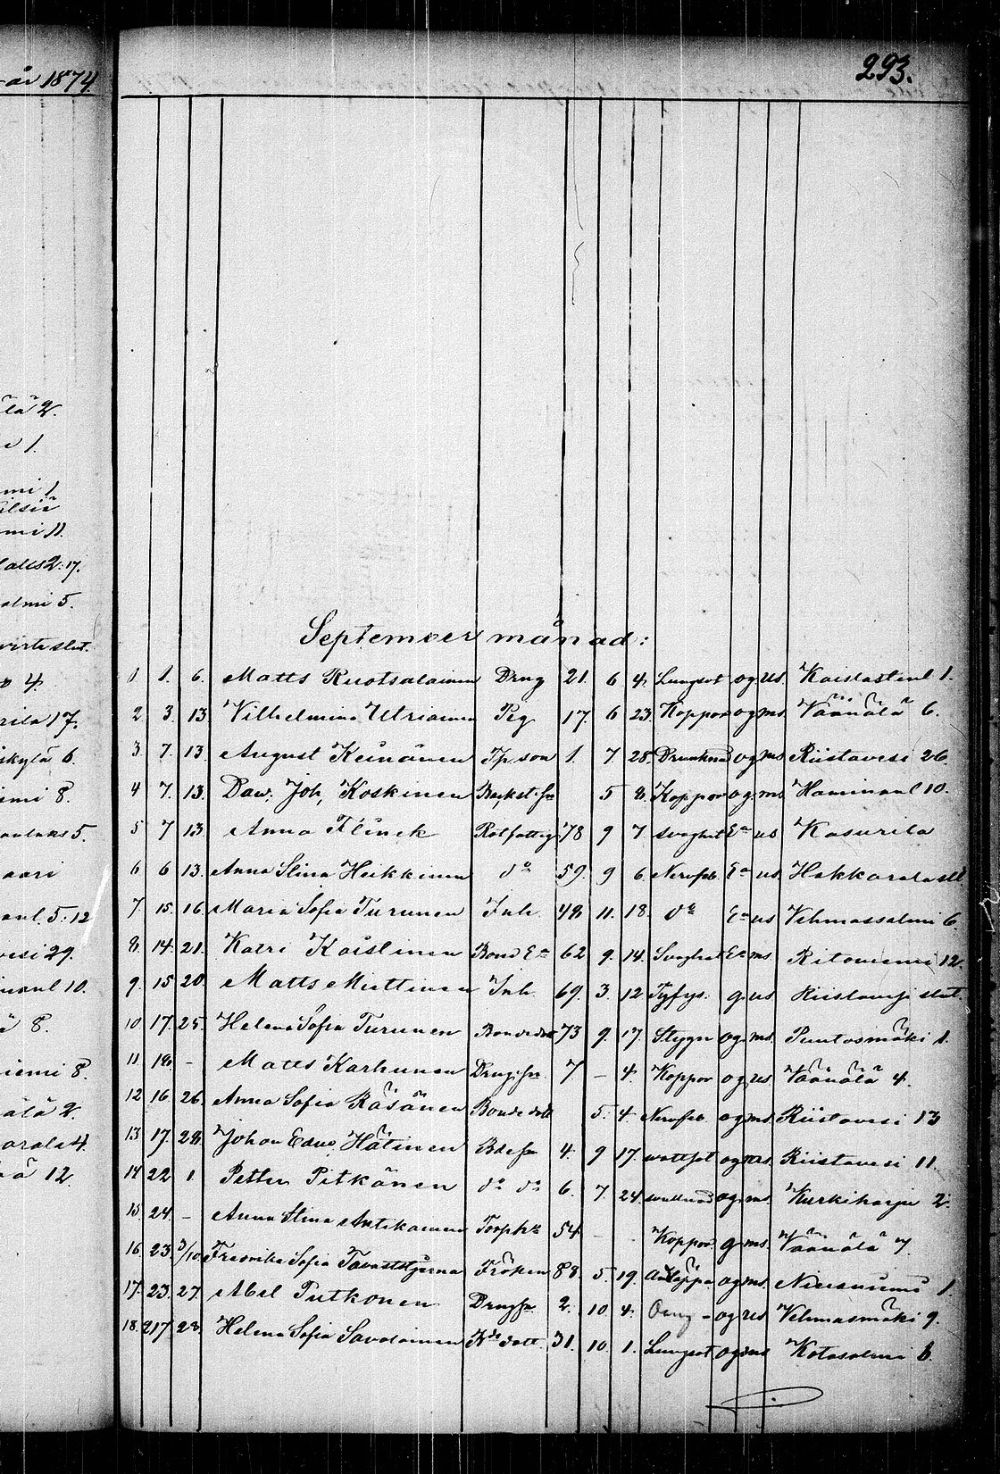 år 1874.
293.
lä 2.
1.
mi 1
ilsiä
mi 11.
2. 17.
almi 5.
slat.
4.
rila 17.
skylä 6.
emi 8.
5.
aari
5. 12
vesi 29.
10.
ä 8.
iemi 8.
älä 2.
arala 4.
12
September månad:
1 1. 6. Matts Ruotsalainen Dreng 21. 6 4. Lungsot og us. Kaislastenl 1.
2. 3. 13. Vilhelmina Utriainen Pig 17. 6 23. Koppor og ms. Väänälä 6.
3. 7. 13. August Keinänen Tp son 1. 7 28. Drunknad og ms Riistavesi 26.
4 7. 13. Daw. Joh. Koskinen 5 8. Koppor og. ms. Haminanl 10.
5 7 13 Anna Flinck Rotfattig 78 9 7 svaghet Ea us Kasurila
6 6 13. Anna Stina Heikkinen do 59. 9 6. Nervfeb Ea us. Hakkarala
7 15. 16 Maria Sofia Turunen Inh. 48 11. 18. do Ea us Vehmassalmi 6.
8. 14. 21. Katri Kaislinen Bond Ea 62 9. 14. Svaghet Ea ms. Ritoniemi 12.
9. 15 20. Matts Miettinen Inh. 69. 3. 12 Tyfys. g us Riistavesi slat.
10. 17. 25. Helena Sofia Turunen Bondedot 73 9. 17. Stygn og ms. Puutosmäki 1.
11 18. - Matts Karhunen Drengsn 7 - 4. Koppor og us Väänälä 4.
12 16 26. Anna Sofia Räsänen Bondedott 5. 4 Nervfeb og ms. Riistavesi 13
13 17. 28. Johan Edvard Hätinen Bdesn 4. 9 17. wattsot og us. Riistavesi 11.
14 22 1 Petter Pitkänen do do 6. 7. 24 og ms. Kurkiharju 2.
15. 24. - Anna Stina Antikainen Torphr 54 - - Koppor g ms. Väänälä 7
16. 23. 3/10. Fredrika Sofia Tavaststjerna Fröken 88. 5. 19. og ms. Niuvaniemi 1
17. 23. 27. Abel Putkonen Drengsn 2. 10 4. - og us Vehmasmäki 9.
18. 217 28. Helena Sofia Savolainen dott. 31. 10. 1. Lungsot og ms Kotasalmi 6.